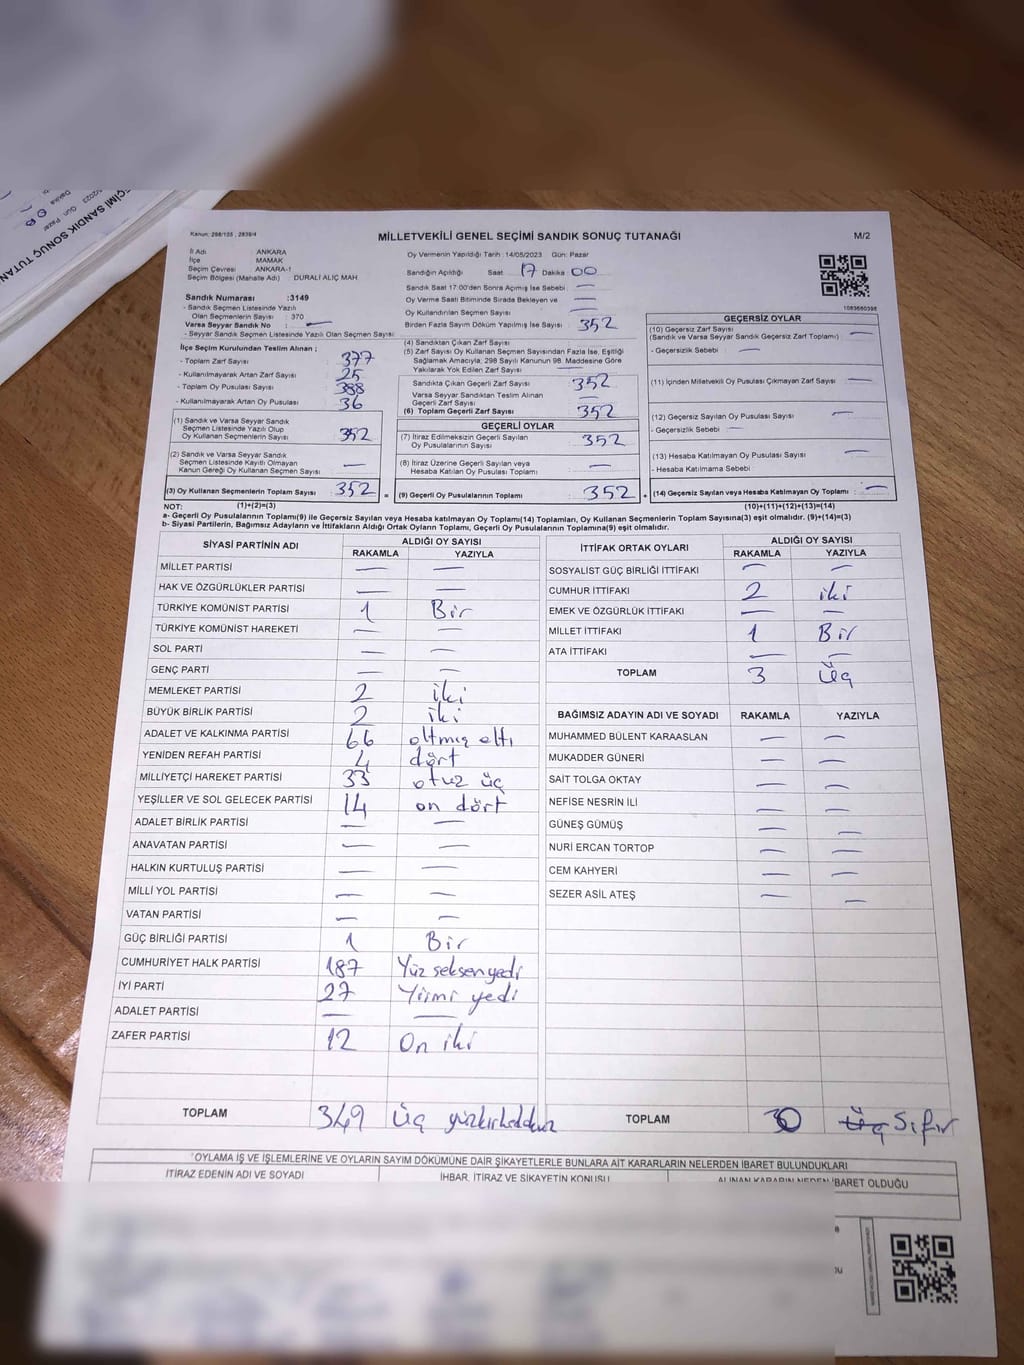 ÇİMİ SANDIK SONUÇ TUTAN
Kanun: 298/105 , 2839/4
MİLLETVEKİLİ GENEL SEÇİMİ SANDIK SONUÇ TUTANAĞI
M/2
İl Adı ANKARA
İlçe MAMAK
Seçim Çevresi ANKARA-1
Seçim Bölgesi (Mahalle Adı) : DURALİ ALIÇ MAH.
Sandık Numarası :3149
- Sandık Seçmen Listesinde Yazılı
Olan Seçmenlerin Sayısı : 370
Varsa Seyyar Sandık No : —
- Seyyar Sandık Seçmen Listesinde Yazılı Olan Seçmen Sayısı
İlçe Seçim Kurulundan Teslim Alınan ;
- Toplam Zarf Sayısı 377
- Kullanılmayarak Artan Zarf Sayısı 25
- Toplam Oy Pusulası Sayısı 388
- Kullanılmayarak Artan Oy Pusulası 36
(1) Sandık ve Varsa Seyyar Sandık
Seçmen Listesinde Yazılı Olup
Oy Kullanan Seçmenlerin Sayısı 352
(2) Sandık ve Varsa Seyyar Sandık
Seçmen Listesinde Kayıtlı Olmayan
Kanun Gereği Oy Kullanan Seçmen Sayısı —
(3) Oy Kullanan Seçmenlerin Toplam Sayısı 352 =
Oy Vermenin Yapıldığı Tarih : 14/05/2023 Gün: Pazar
Sandığın Açıldığı Saat 17 Dakika 00
Sandık Saat 17:00'den Sonra Açılmış İse Sebebi —
Oy Verme Saati Bitiminde Sırada Bekleyen ve —
Oy Kullandırılan Seçmen Sayısı —
Birden Fazla Sayım Döküm Yapılmış İse Sayısı 352
(4) Sandıktan Çıkan Zarf Sayısı
(5) Zarf Sayısı Oy Kullanan Seçmen Sayısından Fazla İse, Eşitliği
Sağlamak Amacıyla; 298 Sayılı Kanunun 98. Maddesine Göre
Yakılarak Yok Edilen Zarf Sayısı —
Sandıkta Çıkan Geçerli Zarf Sayısı 352
Varsa Seyyar Sandıktan Teslim Alınan
Geçerli Zarf Sayısı —
(6) Toplam Geçerli Zarf Sayısı 352
GEÇERLİ OYLAR
(7) İtiraz Edilmeksizin Geçerli Sayılan
Oy Pusulalarının Sayısı 352
(8) İtiraz Üzerine Geçerli Sayılan veya
Hesaba Katılan Oy Pusulası Toplamı —
(9) Geçerli Oy Pusulalarının Toplamı 352 +
1083660398
GEÇERSİZ OYLAR
(10) Geçersiz Zarf Sayısı
(Sandık ve Varsa Seyyar Sandık Geçersiz Zarf Toplamı) —
- Geçersizlik Sebebi : —
(11) İçinden Milletvekili Oy Pusulası Çıkmayan Zarf Sayısı —
(12) Geçersiz Sayılan Oy Pusulası Sayısı —
- Geçersizlik Sebebi : —
(13) Hesaba Katılmayan Oy Pusulası Sayısı —
- Hesaba Katılmama Sebebi :
(14) Geçersiz Sayılan veya Hesaba Katılmayan Oy Toplamı —
NOT: (1)+(2)=(3) (10)+(11)+(12)+(13)=(14)
a- Geçerli Oy Pusulalarının Toplamı(9) ile Geçersiz Sayılan veya Hesaba katılmayan Oy Toplamı(14) Toplamları, Oy Kullanan Seçmenlerin Toplam Sayısına(3) eşit olmalıdır. (9)+(14)=(3)
b- Siyasi Partilerin, Bağımsız Adayların ve İttifakların Aldığı Ortak Oyların Toplamı, Geçerli Oy Pusulalarının Toplamına(9) eşit olmalıdır.
SİYASİ PARTİNİN ADI ALDIĞI OY SAYISI
RAKAMLA YAZIYLA
MİLLET PARTİSİ — —
HAK VE ÖZGÜRLÜKLER PARTİSİ — —
TÜRKİYE KOMÜNİST PARTİSİ 1 Bir
TÜRKİYE KOMÜNİST HAREKETİ — —
SOL PARTİ — —
GENÇ PARTİ — —
MEMLEKET PARTİSİ 2 iki
BÜYÜK BİRLİK PARTİSİ 2 iki
ADALET VE KALKINMA PARTİSİ 66 altmış altı
YENİDEN REFAH PARTİSİ 4 dört
MİLLİYETÇİ HAREKET PARTİSİ 33 otuz üç
YEŞİLLER VE SOL GELECEK PARTİSİ 14 on dört
ADALET BİRLİK PARTİSİ — —
ANAVATAN PARTİSİ — —
HALKIN KURTULUŞ PARTİSİ — —
MİLLİ YOL PARTİSİ — —
VATAN PARTİSİ — —
GÜÇ BİRLİĞİ PARTİSİ 1 Bir
CUMHURİYET HALK PARTİSİ 187 Yüz seksenyedi
İYİ PARTİ 27 Yirmi yedi
ADALET PARTİSİ — —
ZAFER PARTİSİ 12 On iki
TOPLAM 349 üç yüzkırkdokuz
İTTİFAK ORTAK OYLARI ALDIĞI OY SAYISI
RAKAMLA YAZIYLA
SOSYALİST GÜÇ BİRLİĞİ İTTİFAKI — —
CUMHUR İTTİFAKI 2 iki
EMEK VE ÖZGÜRLÜK İTTİFAKI — —
MİLLET İTTİFAKI 1 Bir
ATA İTTİFAKI — —
TOPLAM 3 üç
BAĞIMSIZ ADAYIN ADI VE SOYADI RAKAMLA YAZIYLA
MUHAMMED BÜLENT KARAASLAN — —
MUKADDER GÜNERİ — —
SAİT TOLGA OKTAY — —
NEFİSE NESRİN İLİ — —
GÜNEŞ GÜMÜŞ — —
NURİ ERCAN TORTOP — —
CEM KAHYERİ — —
SEZER ASİL ATEŞ — —
TOPLAM 0 üç Sıfır
OYLAMA İŞ VE İŞLEMLERİNE VE OYLARIN SAYIM DÖKÜMÜNE DAİR ŞİKAYETLERLE BUNLARA AİT KARARLARIN NELERDEN İBARET BULUNDUKLARI
İTİRAZ EDENİN ADI VE SOYADI İHBAR, İTİRAZ VE ŞİKAYETİN KONUSU ALINAN KARARIN NEDEN İBARET OLDUĞU